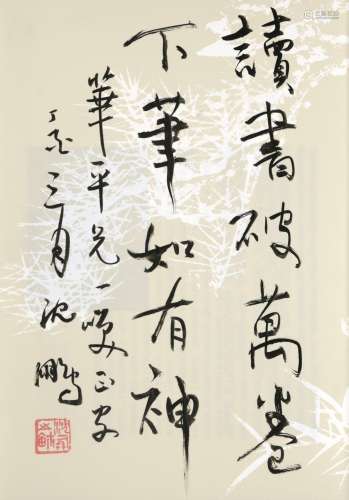 讀書破萬卷
下筆如有神
華平兄一哂正字
丁亥三月沈鵬